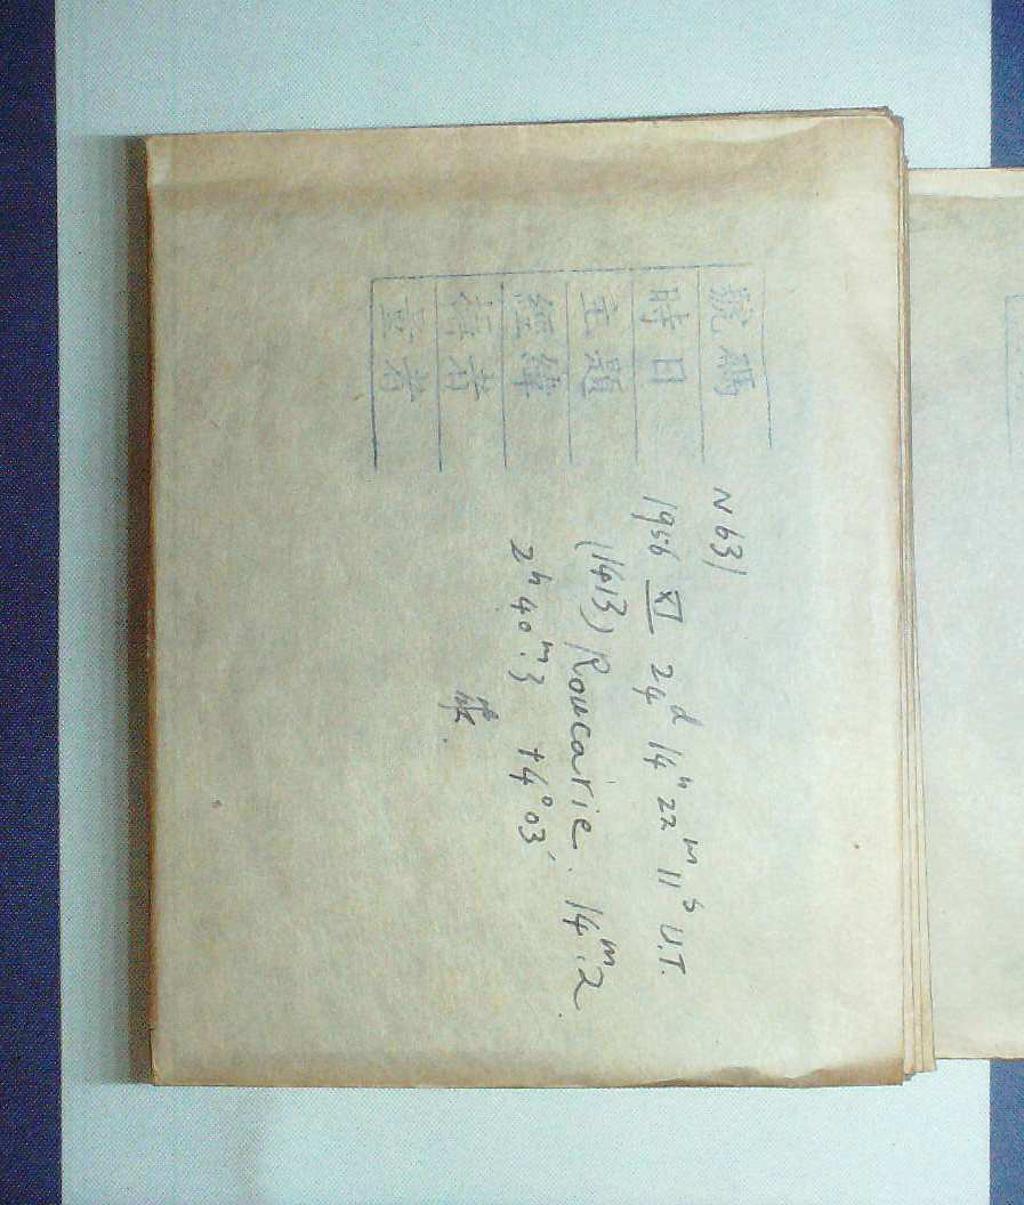 號碼 N 631
時日 1956 XI 24ᵈ 14ʰ 22ᵐ 11ˢ U.T.
主題 (1413) Roucarie. 14ᵐ.2
經緯 2ʰ 40ᵐ.3 +4°03′
者
者